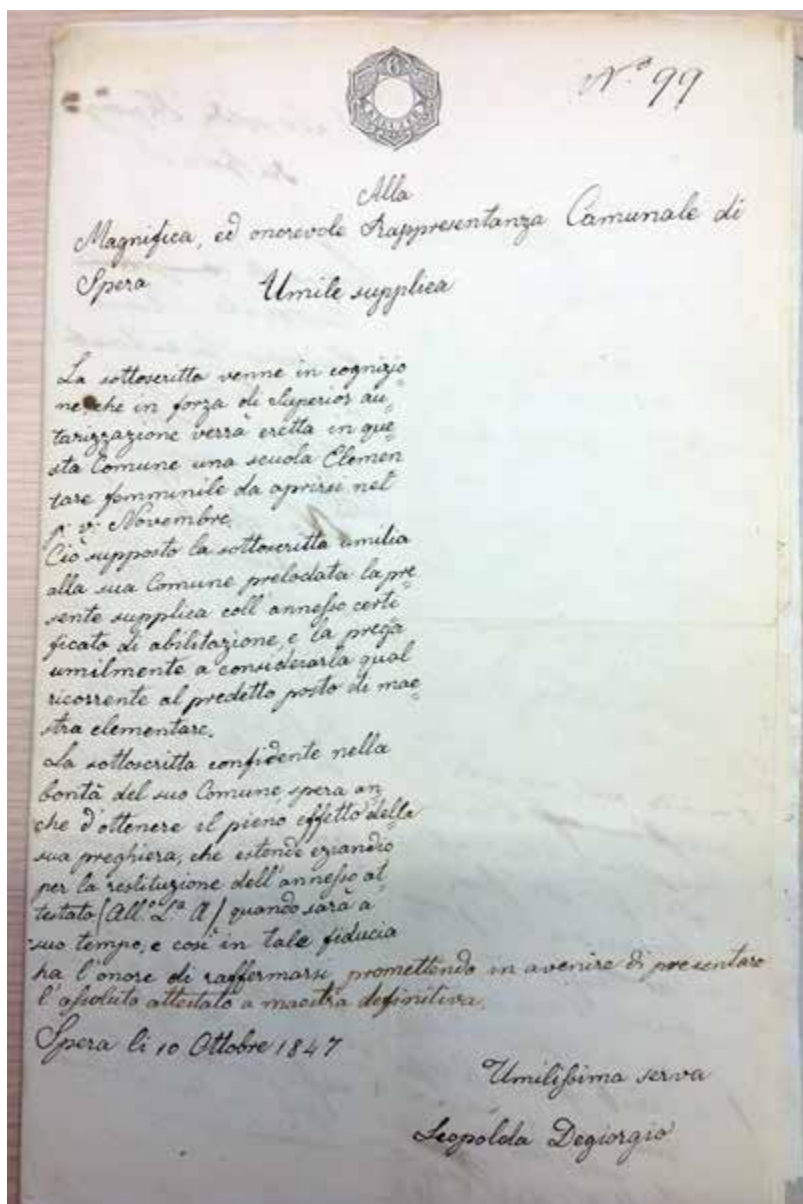 6
N.º 99
Alla
Magnifica, ed onorevole Rappresentanza Comunale di
Spera Umile supplica
La sottoscritta venne in cognizio
ne, che in forza di Superior au„
torizzazione verrà eretta in que„
sta Comune una scuola Elemen
tare femminile da aprirsi nel
p. v. Novembre.
Ciò supposto la sottoscritta umilia
alla sua Comune prelodata la pre„
sente supplica coll'annesso certi„
ficato di abilitazione, e la prega
umilmente a considerarla qual
ricorrente al predetto posto di mae„
stra elementare.
La sottoscritta confidente nella
bontà del suo Comune, spera an„
che d'ottenere il pieno effetto della
sua preghiera, che estende eziandio
per la restituzione dell'annesso at„
testato (All.º L.ª A) quando sarà a
suo tempo, e così in tale fiducia
ha l'onore di raffermarsi, promettendo in avenire di presentare
l'assoluto attestato a maestra definitiva.
Spera li 10 Ottobre 1847
Umilissima serva
Leopolda Degiorgio